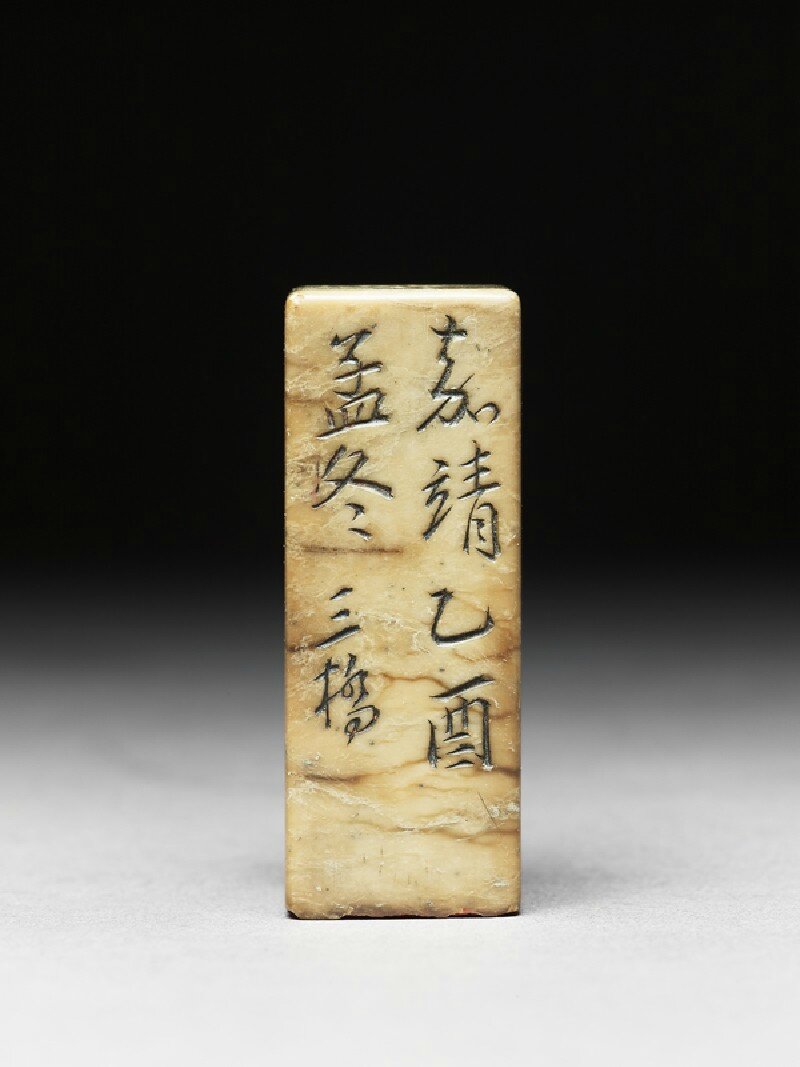 嘉靖乙酉
孟冬三橋